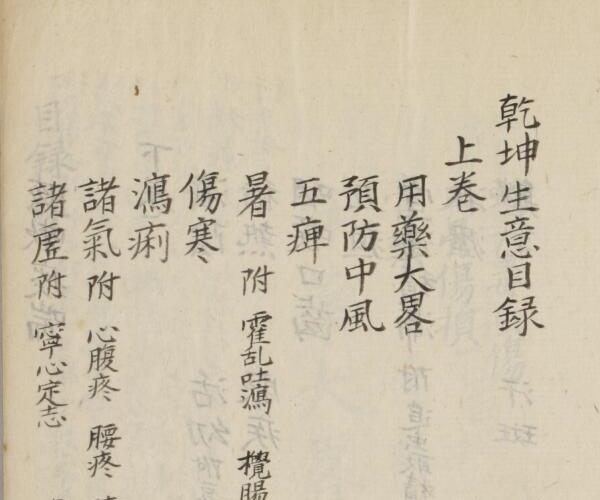 乾坤生意目録
上巻
用藥大畧
預防中風
五痺
暑 附 霍乱吐瀉 攪腸
傷寒
瀉痢
諸氣 附 心腹疼 腰疼
諸虛 附 寧心定志